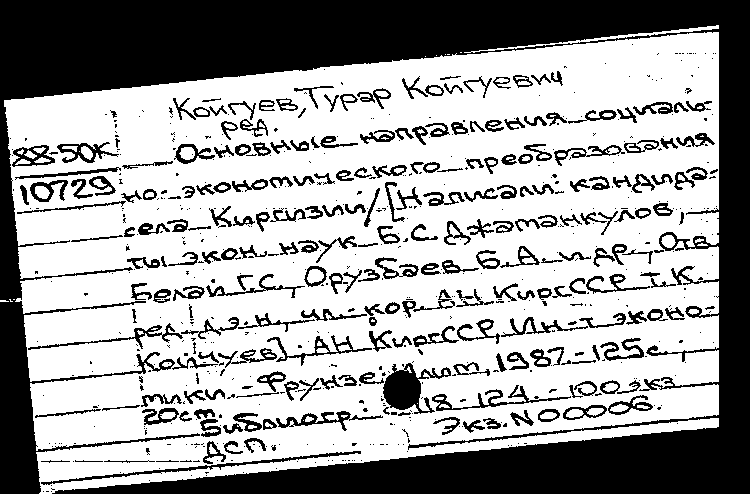 Койгуев, Турар Койгуевич
ред.
88-50К
10729
Основные направления социаль-
но-экономического преобразования
села Киргизии / [Написали: кандида-
ты экон. наук Б.С. Джаманкулов,
Белай Г.С., Орузбаев Б.А. и др.; Отв.
ред. д.э.н., чл.-кор. АН КиргССР Т.К.
Койчуев]; АН КиргССР, Ин-т эконо-
мики. - Фрунзе: Илим, 1987. - 125с.;
20см.
Библиогр.: 118-124. - 100 экз
ДСП.
Экз. N00006.